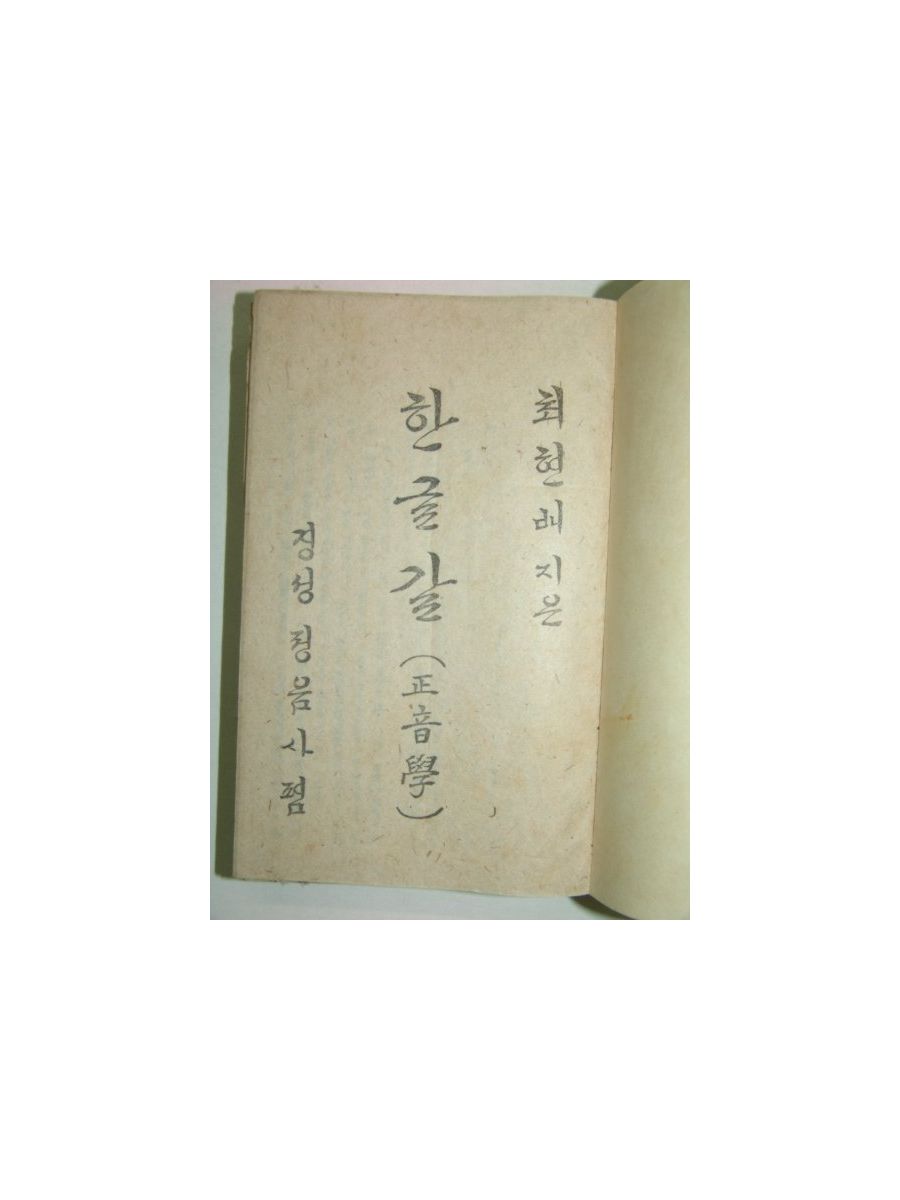 최현배 지은
한글갈 (正音學)
경성 정음사 펌